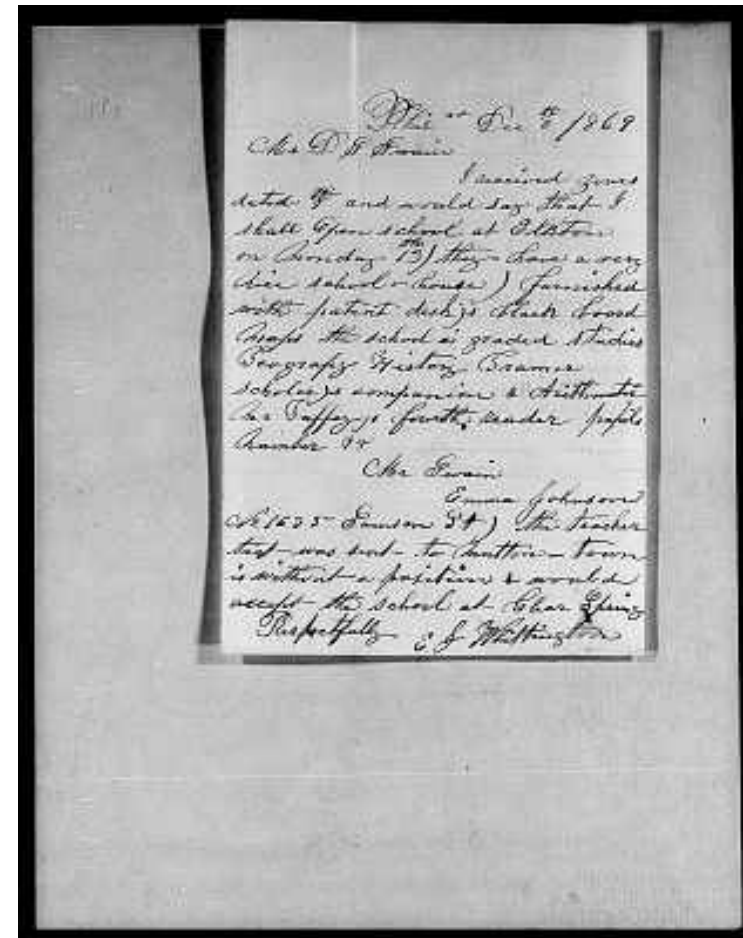 Phil at Dec 8th 1869
Mr D G Swain
I received yours
dated 7th and would say that I
shall open school at Elkton
on Monday 13th) they have a very
nice school-house) furnished
with patent desk,s black board
maps the school is graded studies
Geografy History Gramer
scholar,s companion & Arithmetic
Mc Guffey,s fourth, reader pupils
number
Mr Swain
Emma Johnson
No 1635 St) the teacher
that was sent to Mutton-town
is without a position & would
accept the school at Clear Spring
Respectfully E J Whittington